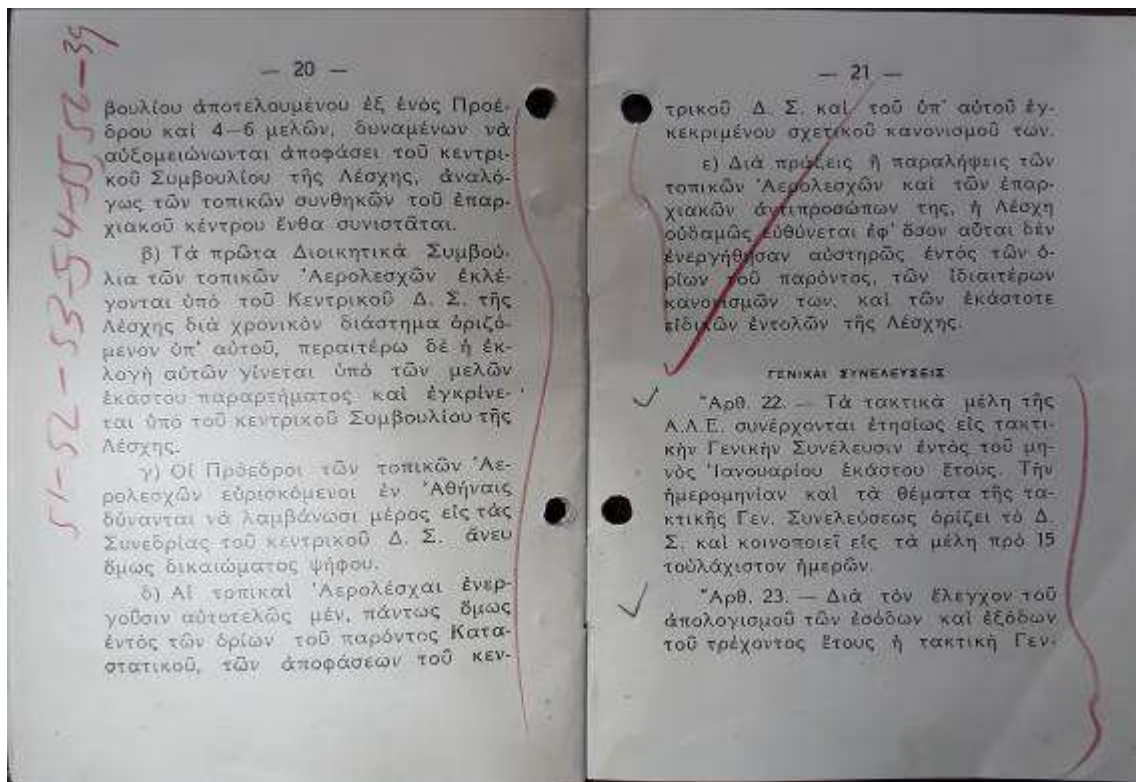 51-52-53-54-55-56-39
— 20 —
βουλίου ἀποτελουμένου ἐξ ἑνὸς Προέ-
δρου καὶ 4—6 μελῶν, δυναμένων νὰ
αὐξομειώνωνται ἀποφάσει τοῦ κεντρι-
κοῦ Συμβουλίου τῆς Λέσχης, ἀναλό-
γως τῶν τοπικῶν συνθηκῶν τοῦ ἐπαρ-
χιακοῦ κέντρου ἔνθα συνιστᾶται.
β) Τὰ πρῶτα Διοικητικὰ Συμβού-
λια τῶν τοπικῶν Ἀερολεσχῶν ἐκλέ-
γονται ὑπὸ τοῦ Κεντρικοῦ Δ. Σ. τῆς
Λέσχης διὰ χρονικὸν διάστημα ὁριζό-
μενον ὑπ' αὐτοῦ, περαιτέρω δὲ ἡ ἐκ-
λογὴ αὐτῶν γίνεται ὑπὸ τῶν μελῶν
ἑκάστου παραρτήματος καὶ ἐγκρίνε-
ται ὑπὸ τοῦ κεντρικοῦ Συμβουλίου τῆς
Λέσχης.
γ) Οἱ Πρόεδροι τῶν τοπικῶν Ἀε-
ρολεσχῶν εὑρισκόμενοι ἐν Ἀθήναις
δύνανται νὰ λαμβάνωσι μέρος εἰς τὰς
Συνεδρίας τοῦ κεντρικοῦ Δ. Σ. ἄνευ
ὅμως δικαιώματος ψήφου.
δ) Αἱ τοπικαὶ Ἀερολέσχαι ἐνερ-
γοῦσιν αὐτοτελῶς μέν, πάντως ὅμως
ἐντὸς τῶν ὁρίων τοῦ παρόντος Κατα-
στατικοῦ, τῶν ἀποφάσεων τοῦ κεν-
— 21 —
τρικοῦ Δ. Σ. καὶ τοῦ ὑπ' αὐτοῦ ἐγ-
κεκριμένου σχετικοῦ κανονισμοῦ των.
ε) Διὰ πράξεις ἢ παραλήψεις τῶν
τοπικῶν Ἀερολεσχῶν καὶ τῶν ἐπαρ-
χιακῶν ἀντιπροσώπων της, ἡ Λέσχη
οὐδαμῶς εὐθύνεται ἐφ' ὅσον αὗται δὲν
ἐνεργήθησαν αὐστηρῶς ἐντὸς τῶν ὁ-
ρίων τοῦ παρόντος, τῶν ἰδιαιτέρων
κανονισμῶν των, καὶ τῶν ἑκάστοτε
εἰδικῶν ἐντολῶν τῆς Λέσχης.
ΓΕΝΙΚΑΙ ΣΥΝΕΛΕΥΣΕΙΣ
Ἄρθ. 22. — Τὰ τακτικὰ μέλη τῆς
Α.Λ.Ε. συνέρχονται ἐτησίως εἰς τακτι-
κὴν Γενικὴν Συνέλευσιν ἐντὸς τοῦ μη-
νὸς Ἰανουαρίου ἑκάστου ἔτους. Τὴν
ἡμερομηνίαν καὶ τὰ θέματα τῆς τα-
κτικῆς Γεν. Συνελεύσεως ὁρίζει τὸ Δ.
Σ. καὶ κοινοποιεῖ εἰς τὰ μέλη πρὸ 15
τοὐλάχιστον ἡμερῶν.
Ἄρθ. 23. — Διὰ τὸν ἔλεγχον τοῦ
ἀπολογισμοῦ τῶν ἐσόδων καὶ ἐξόδων
τοῦ τρέχοντος ἔτους ἡ τακτικὴ Γεν-